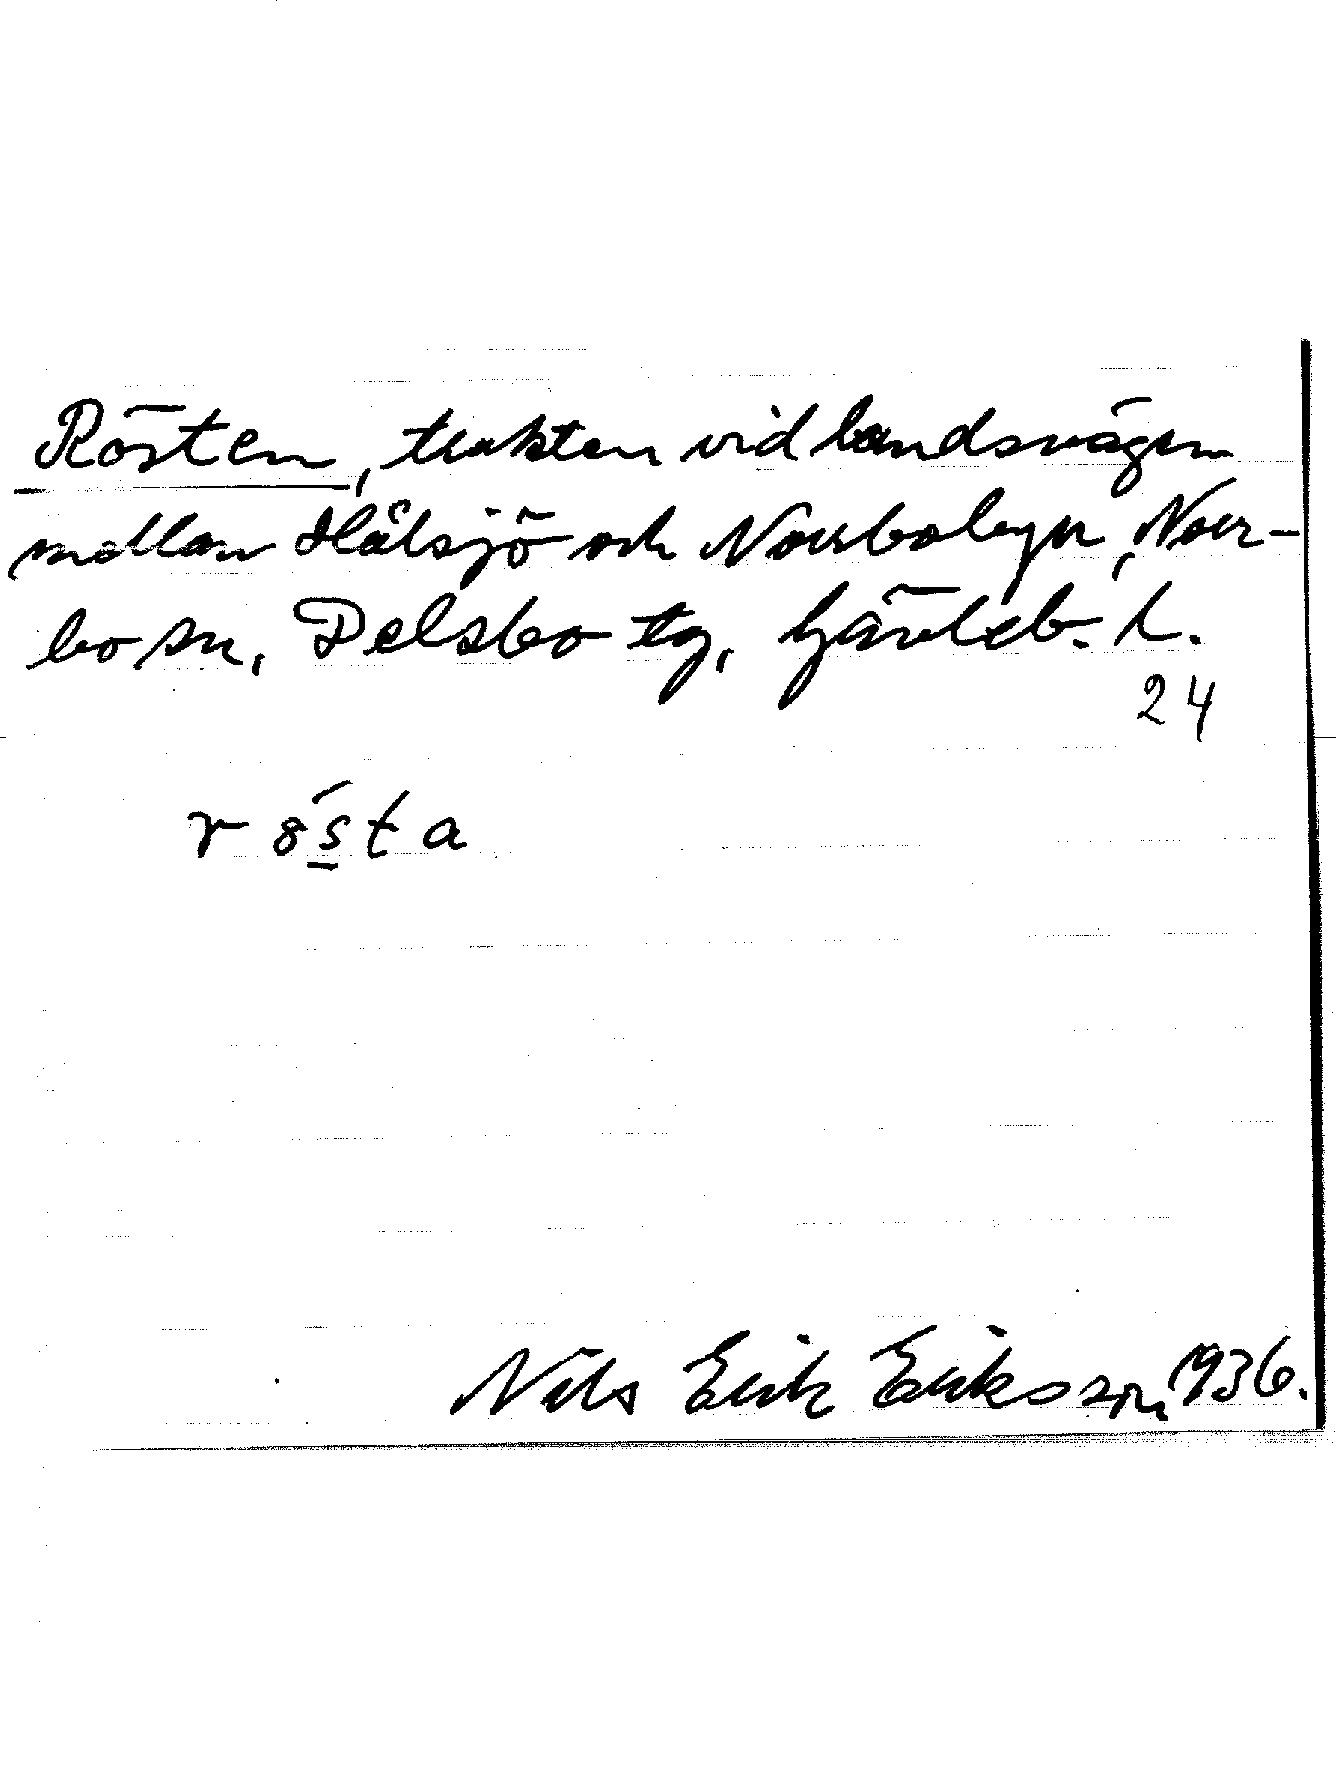 Rösten, trakten vid landsvägen
mellan Hålsjö och Norrbobyn, Norr-
bo sn, Delsbo tg, Gävleb. l.
24
r ö́s̲ t a
Nils Erik Eriksson, 1936.